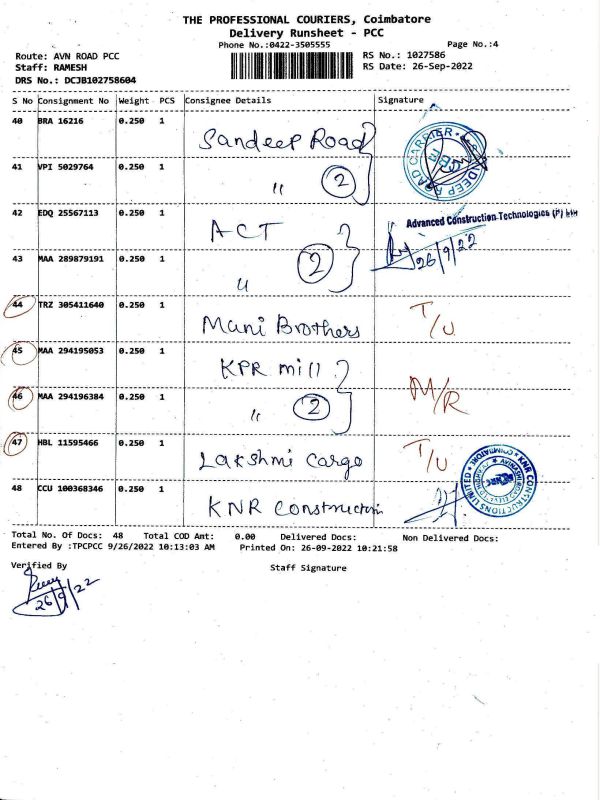 THE PROFESSIONAL COURIERS, Coimbatore
Delivery Runsheet - PCC
Phone No.:0422-3505555
Page No.:4
Route: AVN ROAD PCC
RS No.: 1027586
Staff: RAMESH
RS Date: 26-Sep-2022
DRS No.: DCJB102758604
S No Consignment No Weight PCS Consignee Details Signature
40 BRA 16216 0.250 1 Sandeep Road
41 VPI 5029764 0.250 1 " 2
42 EDQ 25567113 0.250 1 ACT
Advanced Construction Technologies (P)
26/9/22
43 MAA 289879191 0.250 1 " 2
44 TRZ 305411640 0.250 1 Mani Brothers T/U
45 MAA 294195053 0.250 1 KPR mill
46 MAA 294196384 0.250 1 " 2 M/R
47 HBL 11595466 0.250 1 Lakshmi Cargo T/U
48 CCU 100368346 0.250 1 KNR Construction
KNR CONSTRUCTIONS LIMITED
Total No. Of Docs: 48 Total COD Amt: 0.00 Delivered Docs: Non Delivered Docs:
Entered By :TPCPCC 9/26/2022 10:13:03 AM Printed On: 26-09-2022 10:21:58
Verified By
Staff Signature
26/9/22